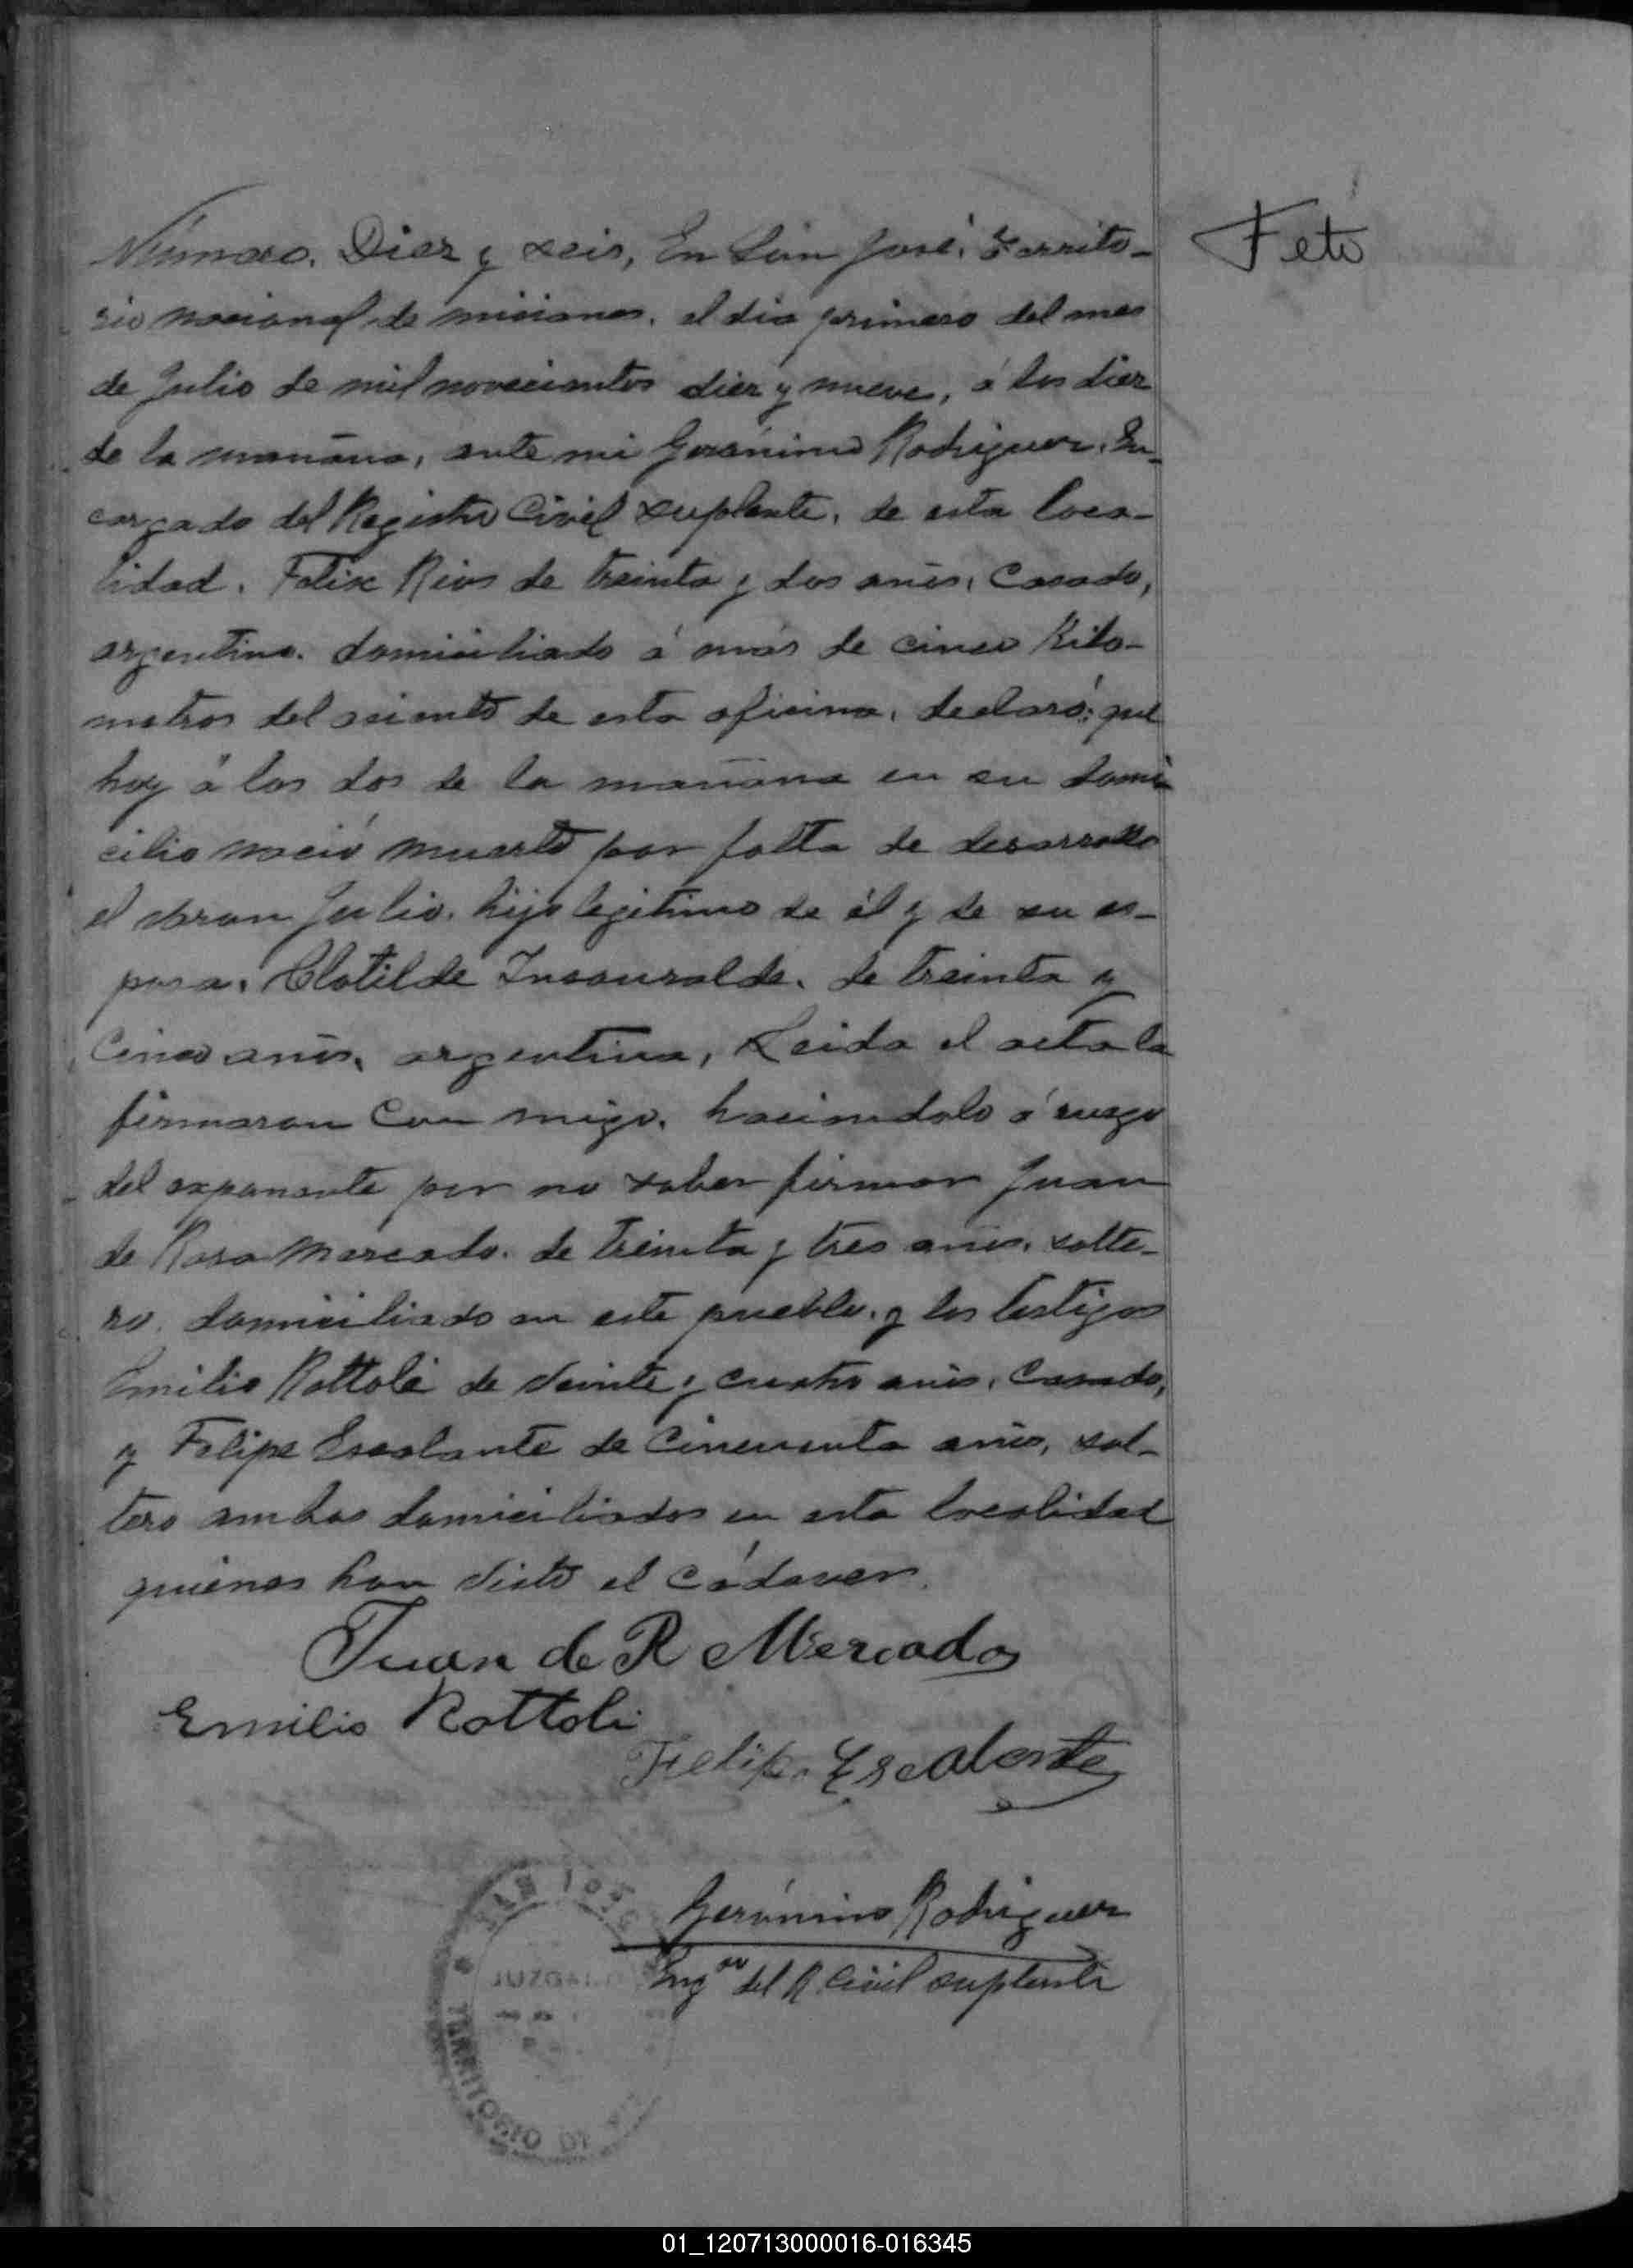 Número. Diez y seis, En San José, Territo-
rio nacional de misiones, el dia primero del mes
de Julio de mil novecientos diez y nueve, á las diez
de la mañana, ante mi Gerónimo Rodriguez, En-
cargado del Registro Civil suplente, de esta loca-
lidad. Felix Rios de treinta y dos años, Casado,
argentino. domiciliado á más de cinco Kilo-
metros del asiento de esta oficina, declaró: que
hoy á las dos de la mañana en su domi-
cilio nació muerto por falta de desarrollo
el varon Julio, hijo legitimo de él y de su es-
posa, Clotilde Insaurralde, de treinta y
Cinco años, argentina, Leida el acta la
firmaron Con migo, haciendolo á ruego
del exponente por no saber firmar Juan
de Rosa Mercado. de treinta y tres años, solte-
ro, domiciliado en este pueblo, y los testigos
Emilio Rottoli de veinte y cuatro años, Casado,
y Felipe Escalante de Cincuenta años, sol-
tero ambos domiciliados en esta localidad
quienes han visto el cádaver.
Juan de R Mercado
Emilio Rottoli
Felipe Escalante
Gerónimo Rodriguez
Engdo del R. Civil suplente
SAN JOSE
JUZGADO
TERRITORIO DE
Feto
01_120713000016-016345